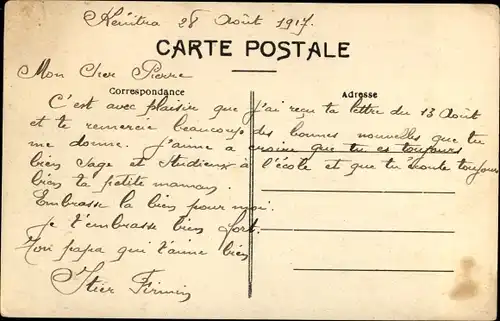 Kénitra 28 Août 1917.
CARTE POSTALE
Mon Cher Pierre
Correspondance
Adresse
C'est avec plaisir que j'ai reçu ta lettre du 13 Août
et te remercie beaucoup des bonnes nouvelles que tu
me donne. J'aime a croire que tu es toujours
bien sage et studieux à l'école et que tu écoute toujours
bien ta petite maman.
Embrasse la bien pour moi.
je t'embrasse bien fort.
Ton papa qui t'aime bien
Itier Firmin